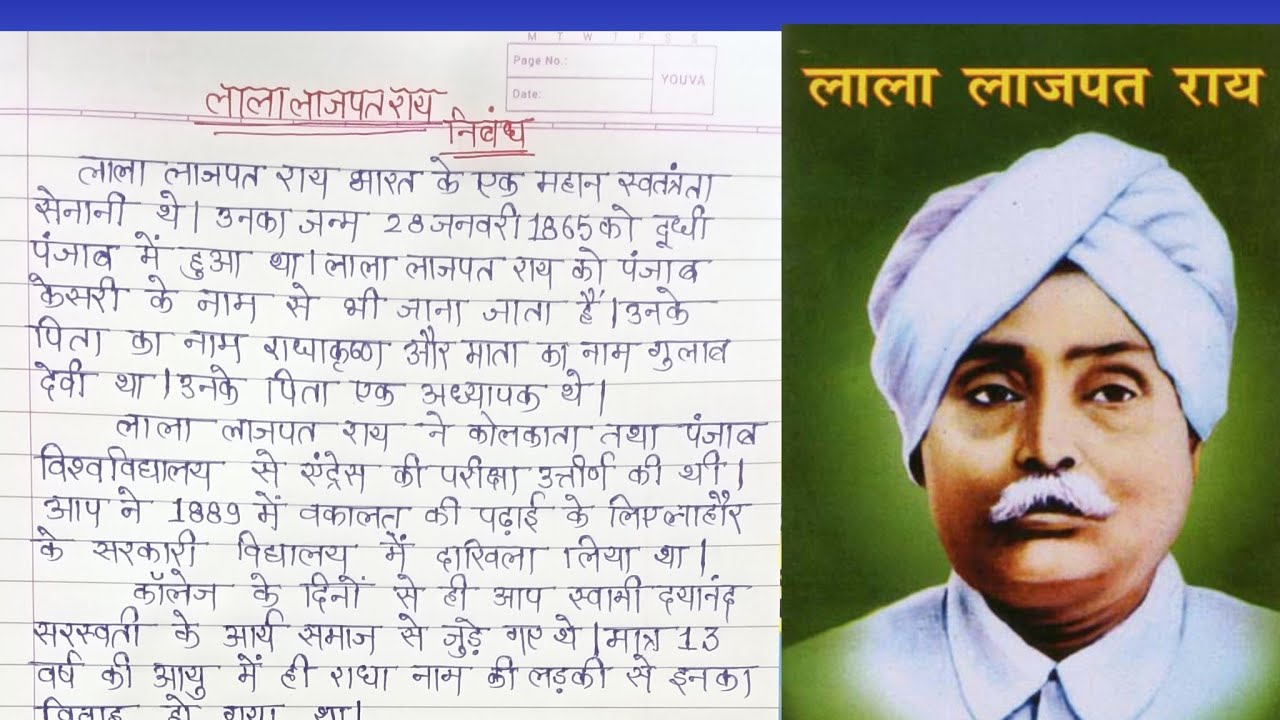 M T W T F S S
Page No.:
Date:
YOUVA
लाला लाजपत राय
निबंध
लाला लाजपत राय भारत के एक महान स्वतंत्रता
सेनानी थे। उनका जन्म 28 जनवरी 1865 को दूधी
पंजाब में हुआ था। लाला लाजपत राय को पंजाब
केसरी के नाम से भी जाना जाता हैं। उनके
पिता का नाम राधाकृष्ण और माता का नाम गुलाब
देवी था। उनके पिता एक अध्यापक थे।
लाला लाजपत राय ने कोलकाता तथा पंजाब
विश्वविद्यालय से एंट्रेस की परीक्षा उत्तीर्ण की थी।
आप ने 1889 में वकालत की पढ़ाई के लिए लाहौर
के सरकारी विद्यालय में दाखिला लिया था।
कॉलेज के दिनों से ही आप स्वामी दयानंद
सरस्वती के आर्य समाज से जुड़े गए थे। मात्र 13
वर्ष की आयु में ही राधा नाम की लड़की से इनका
विवाह हो गया था।
लाला लाजपत राय